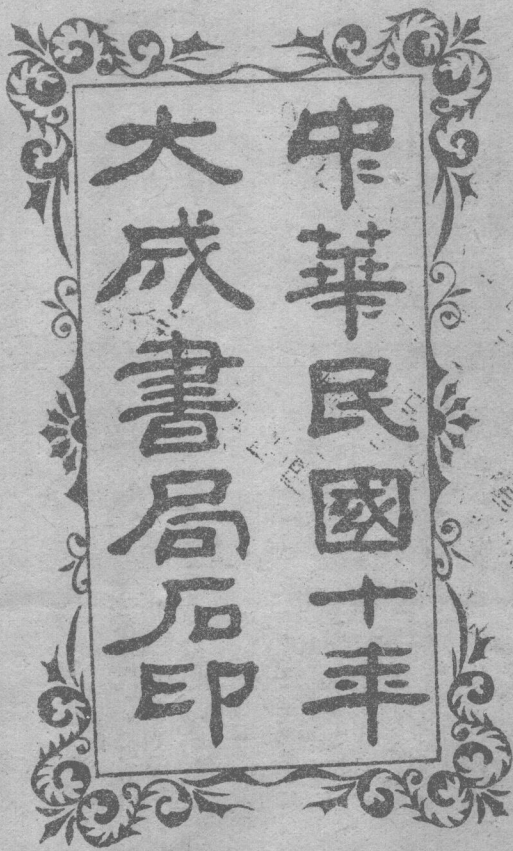 中華民國十年
大成書局石印